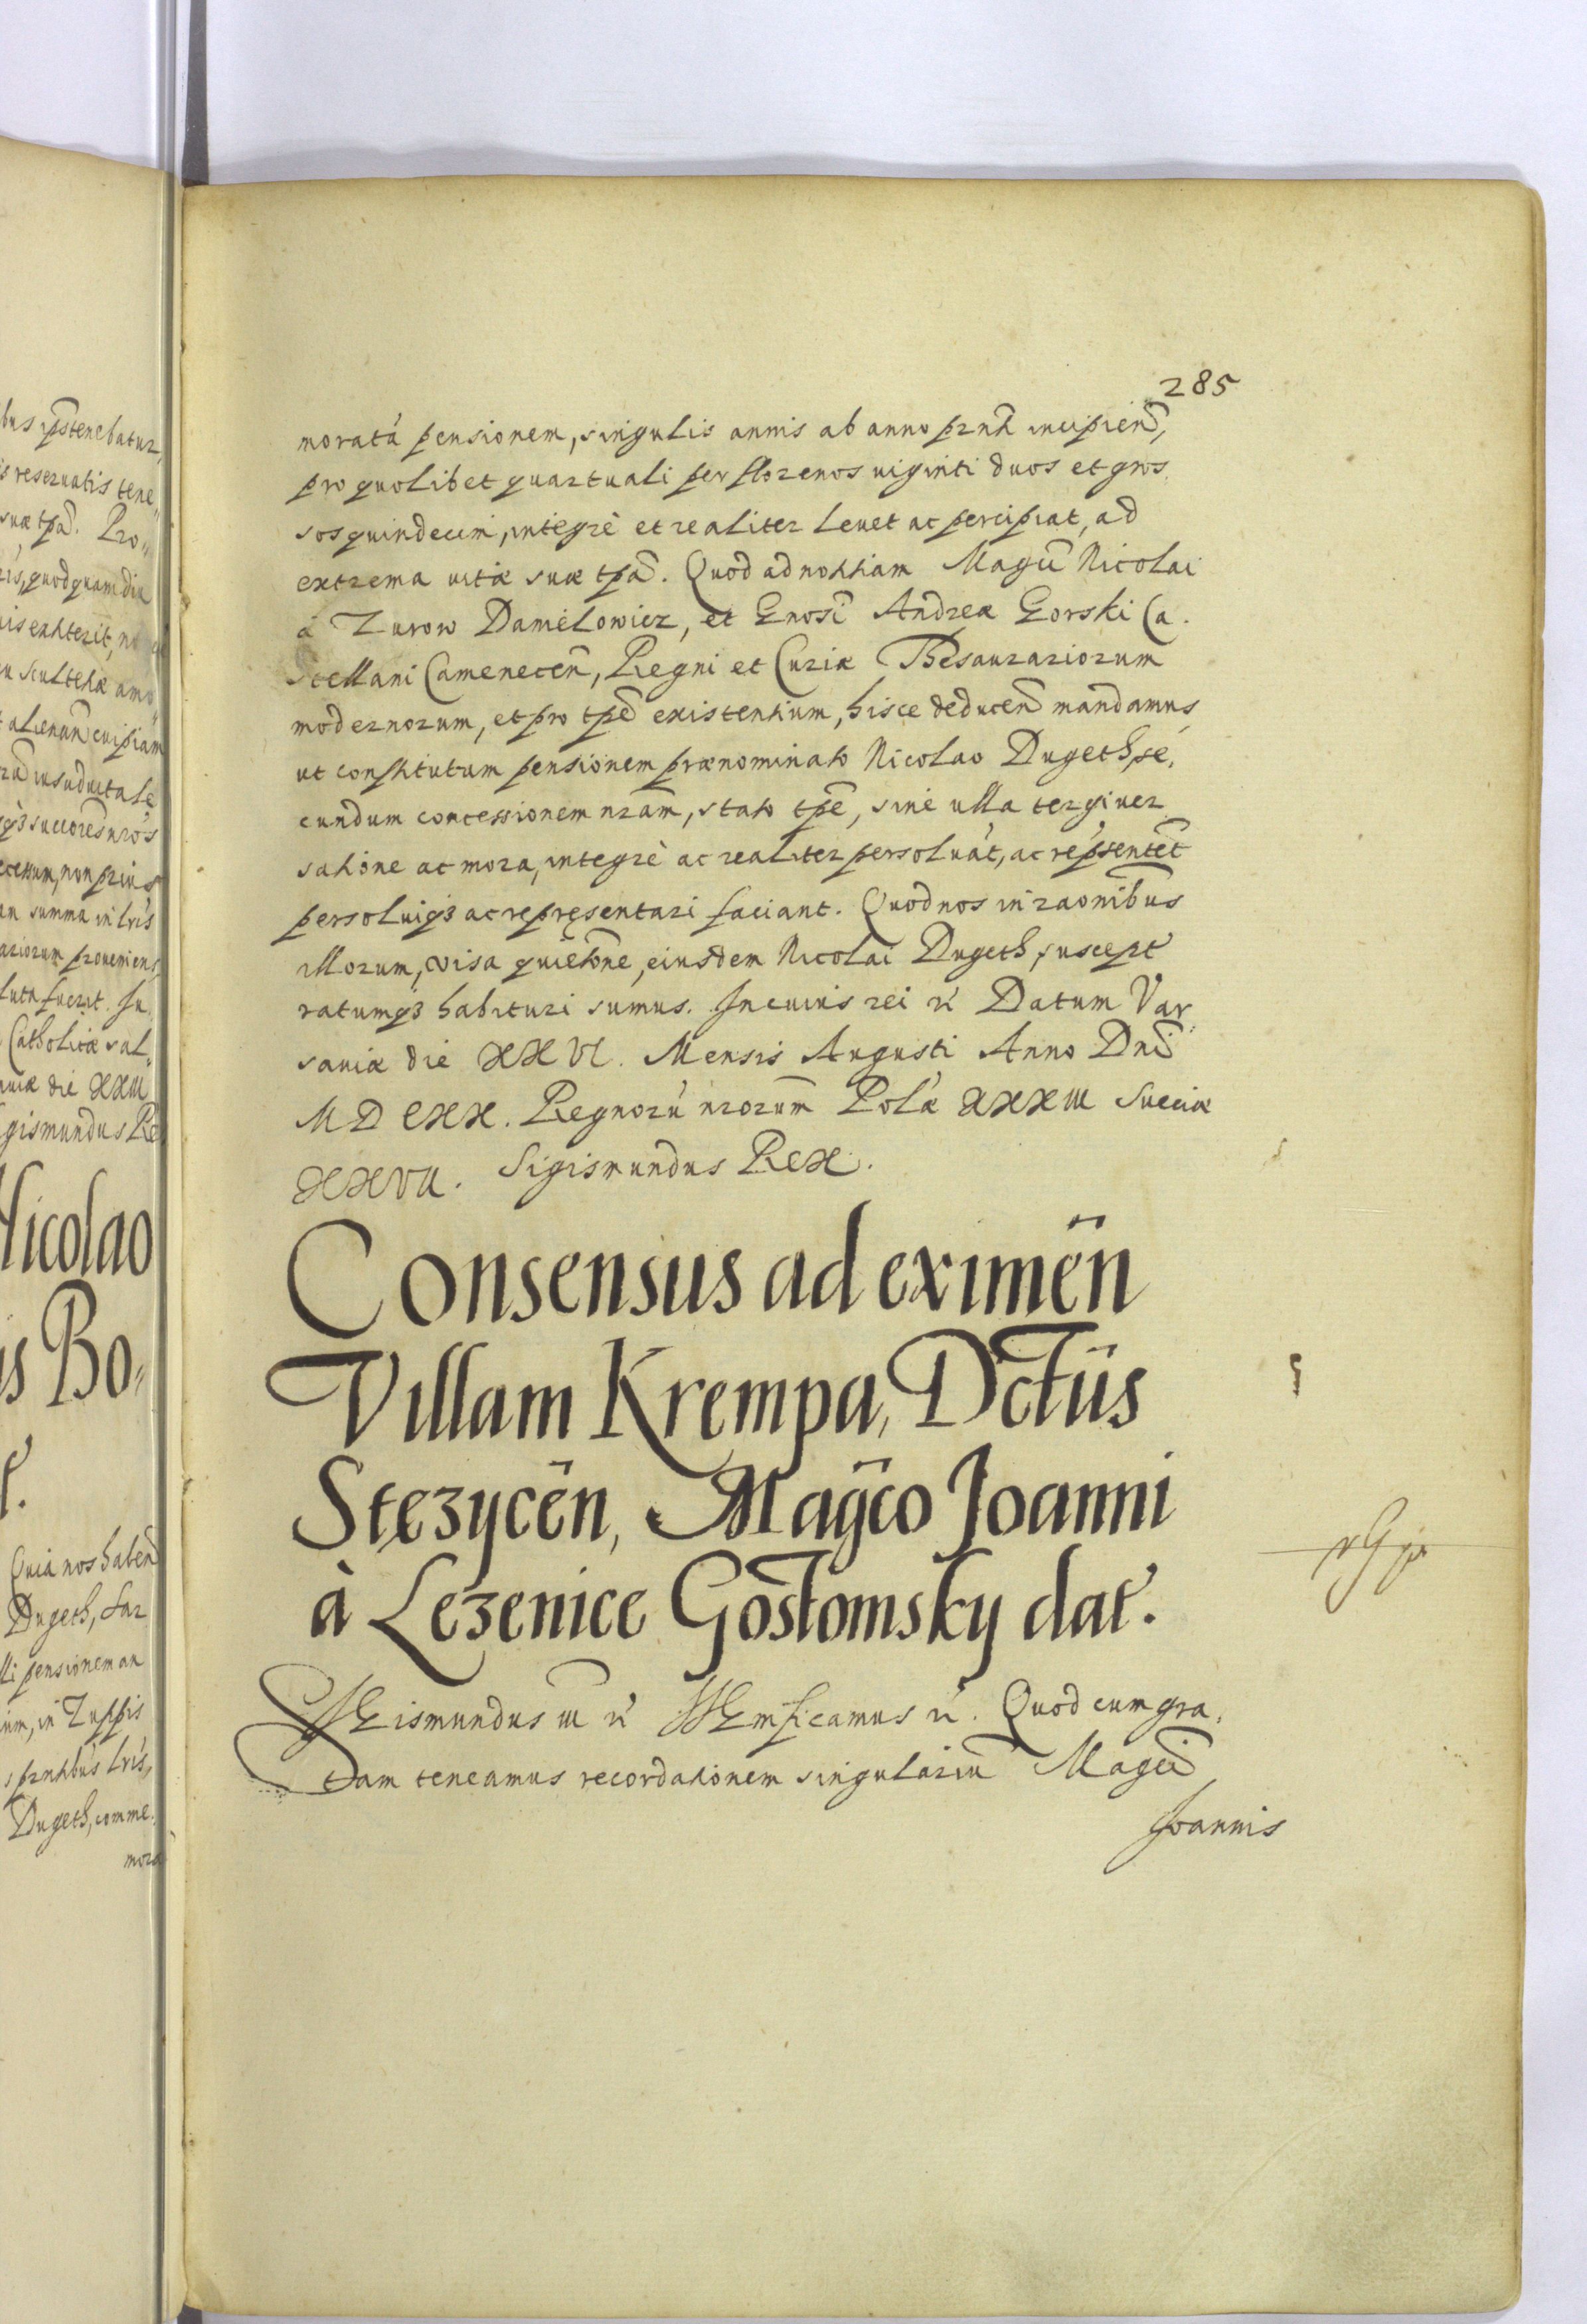 285
moratã pensionem, singulis annis ab anno prnti incipien̄,
pro quolibet quartuali per florenos uiginti duos et gros,
sos quindecim, integrè et realiter leuet ac percipiat, ad
extrema uitæ suæ tpā. Quod ad notitiam Magci Nicolai
à Zurow Danielowicz, et Gnosi Andreæ Gorski Ca.
stellani Camenecen̄, Regni et Curiæ Thesaurariorum
modernorum, et pro tpē existentium, hisce deducen̄ mandamus,
ut constitutam pensionem prænominato Nicolao Dugeth, se,
cundum concessionem nram̄, stato tpē, sine ulla tergiuer
satione ac mora, integrè ac realiter persoluāt, ac rep̄sentēt
persoluiq3 ac repręsentari faciant. Quod nos in raonib̄us
illorum, visa quietōne, eiusdem Nicolai Dugeth, suscept
ratumq3 habituri sumus. In cuius rei &c Datum Var
sauiæ die XXVI. Mensis Augusti Anno Dni
MDCXX. Regnorū nrorum̄ Polæ XXXIII Sueciæ
XXVII. Sigismundus Rex.
Consensus ad eximēn
Villam Krempa, Dctiis
Stęzycēn, Magco Joanni
à Lezenice Gostomsky dat.
SIGismundus III &c SIGnificamus &c. Quod cum gra,
tam teneamus recordationem singulariū Magci
Joannis
bus ipŝ tenebatur,
is reseruatis tene
suæ tpā. Pro
quod quam diu
alienan̄ cuipiam
non prius
summa in lris
ariorum proueniens
luta fuerit. In
Catholicæ sal
uiæ die XXIII
gismundus Re
Nicolao
is Bo
Quia nos haben̄
Dugeth, Sar
lli pensionem an
in Zuppis
prntibus lris,
Dugeth, comme.
mora